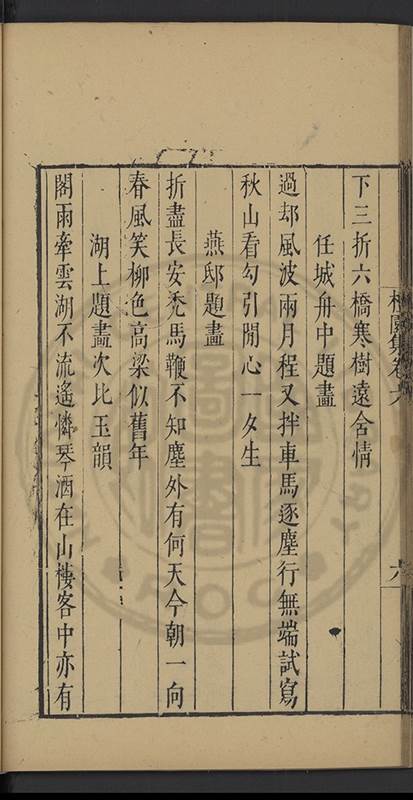 下三折六橋寒樹遠含情
任城舟中題畫
過却風波兩月程又拌車馬逐塵行無端試寫
秋山看勾引閒心一夕生
燕邸題畫
折盡長安禿馬鞭不知塵外有何天今朝一向
春風笑柳色高梁似舊年
湖上題畫次比玉韻
閣雨牽雲湖不流遙憐琴酒在山樓客中亦有
園集卷六
六